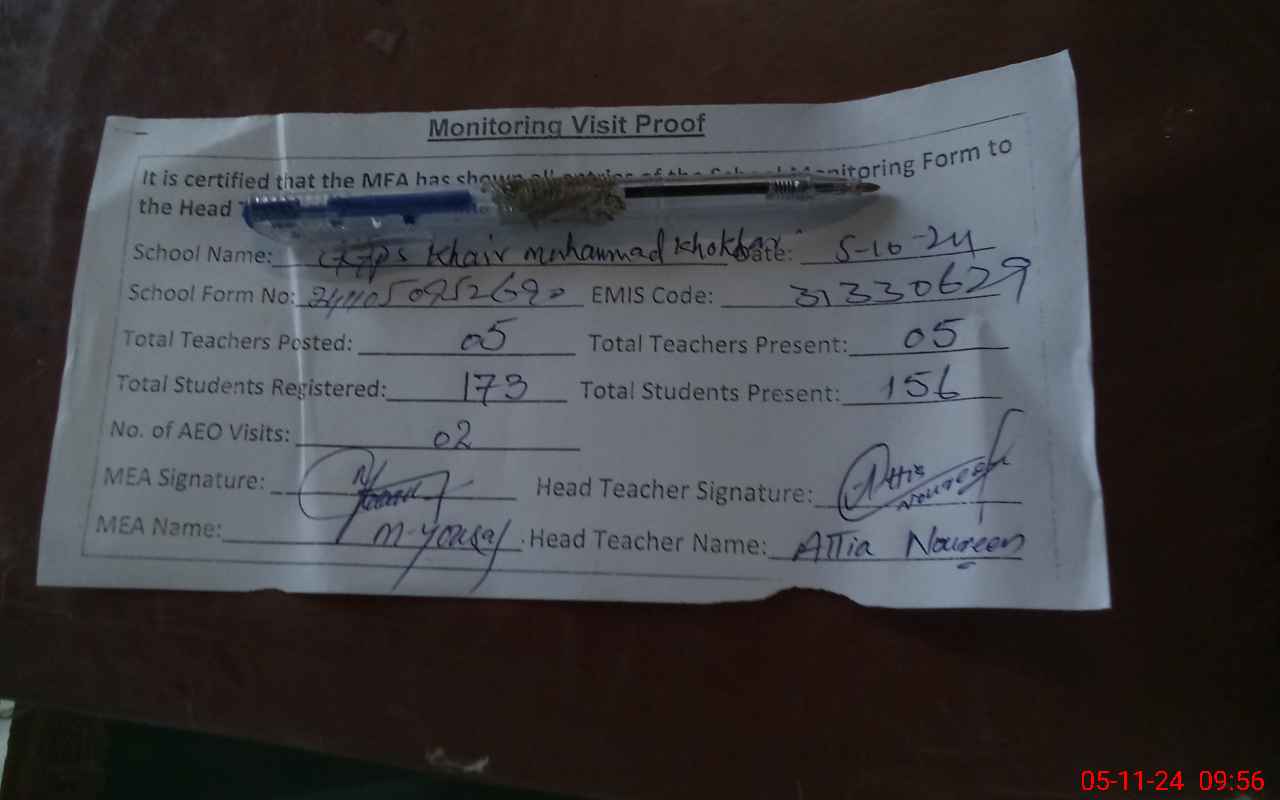 Monitoring Visit Proof
It is certified that the MEA has shown all entries of the School Monitoring Form to
the Head
School Name: GGPS Khair Muhammad Khokhar Date: 5-10-24
School Form No: EMIS Code: 31330629
Total Teachers Posted: 05 Total Teachers Present: 05
Total Students Registered: 173 Total Students Present: 156
No. of AEO Visits: 02
MEA Signature: Head Teacher Signature: Attia Noureen
MEA Name: M-Yousaf Head Teacher Name: ATTia Noureen
05-11-24 09:56